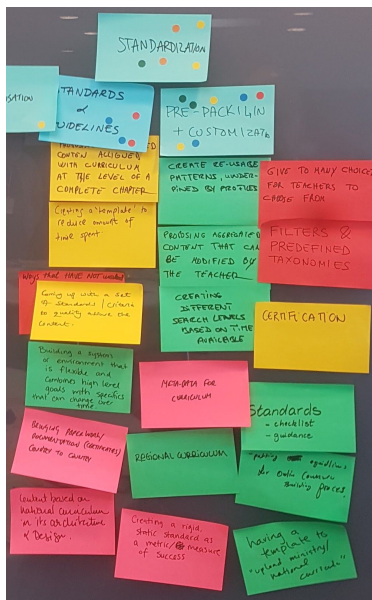 STANDARDIZATION
ISATION
TANDARDS
&
UIDELINES
PRE-PACKIGIN
+ CUSTOMIZATE
CONTEN ALIGNED
WITH CURRICULUM
AT THE LEVEL OF A
COMPLETE CHAPTER
CREATE RE-USAGE
PATTERNS, UNDER-
PINED BY PROFILES
GIVE TO MANY CHOICE
FOR TEACHERS TO
CHOOSE FROM
Creating a "template" to
reduce amount of
time spent.
PROPOSING AGGREGATED
CONTENT THAT CAN
BE MODIFIED BY
THE TEACHER
FILTERS &
PREDEFINED
TAXONOMIES
Ways that HAVE NOT worked
Coming up with a set
of standards / criteria
to quality assure the
content.
CREATING
DIFFERENT
SEARCH LEVELS
BASED ON TIME
AVAILABLE
CERTIFICATION
Building a system
or environment that
is flexible and
combines high level
goals with specifics
that can change over
time
META-DATA FOR
CURRICULUM
Standards
- checklist
- guidance
BRINGING
DOCUMENTATION (CERTIFICATES)
COUNTRY TO COUNTRY
REGIONAL CURRICULUM
guidelines
for Online
Building
Content based on
national curriculum
in its architecture
& Design.
Creating a rigid
static standard as
a metric/ measure
of success
having a
template to
"upload ministry/
national curricula"